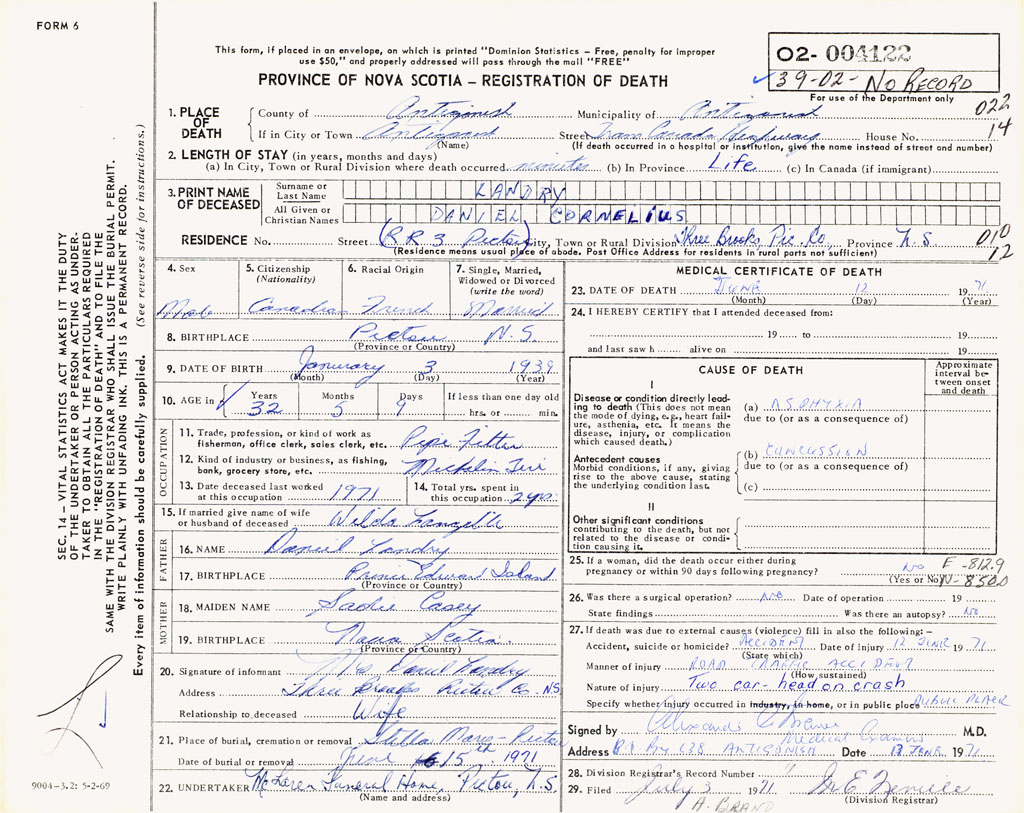 FORM 6
This form, if placed in an envelope, on which is printed "Dominion Statistics – Free, penalty for improper
use $50," and properly addressed will pass through the mail "FREE"
PROVINCE OF NOVA SCOTIA – REGISTRATION OF DEATH
02- 004122
39-02- NO RECORD
For use of the Department only
022
14
1. PLACE OF DEATH
County of Antigonish Municipality of Antigonish
If in City or Town Antigonish Street Trans Canada Highway House No.
(Name) (If death occurred in a hospital or institution, give the name instead of street and number)
2. LENGTH OF STAY (in years, months and days)
(a) In City, Town or Rural Division where death occurred minutes (b) In Province Life (c) In Canada (if immigrant)
3. PRINT NAME OF DECEASED
Surname or Last Name LANDRY
All Given or Christian Names DANIEL CORNELIUS
RESIDENCE No. Street (RR3 Pictou) City, Town or Rural Division Three Brooks, Pic. Co., Province N.S.
010
12
(Residence means usual place of abode. Post Office Address for residents in rural parts not sufficient)
4. Sex Male
5. Citizenship (Nationality) Canadian
6. Racial Origin French
7. Single, Married, Widowed or Divorced (write the word) Married
8. BIRTHPLACE Pictou N.S.
(Province or Country)
9. DATE OF BIRTH January 3 1939
(Month) (Day) (Year)
10. AGE in Years 32 Months 5 Days 9 If less than one day old hrs. or min.
OCCUPATION
11. Trade, profession, or kind of work as fisherman, office clerk, sales clerk, etc. Pipe Fitter
12. Kind of industry or business, as fishing, bank, grocery store, etc. Michelin Tire
13. Date deceased last worked at this occupation 1971
14. Total yrs. spent in this occupation 2 yrs.
15. If married give name of wife or husband of deceased Wilda
FATHER
16. NAME Daniel Landry
17. BIRTHPLACE Prince Edward Island
(Province or Country)
MOTHER
18. MAIDEN NAME Sadie Casey
19. BIRTHPLACE Nova Scotia
(Province or Country)
20. Signature of informant Mrs. Daniel Landry
Address Three Brooks Pictou Co. NS
Relationship to deceased Wife
21. Place of burial, cremation or removal Stella Maris - Pictou
Date of burial or removal June 15th 1971
22. UNDERTAKER McLaren Funeral Home, Pictou, N.S.
(Name and address)
MEDICAL CERTIFICATE OF DEATH
23. DATE OF DEATH JUNE 12 1971
(Month) (Day) (Year)
24. I HEREBY CERTIFY that I attended deceased from:
19 to 19
and last saw h alive on 19
CAUSE OF DEATH
Approximate interval between onset and death
I
Disease or condition directly leading to death (This does not mean the mode of dying, e.g., heart failure, asthenia, etc. It means the disease, injury, or complication which caused death.)
(a) ASPHYXIA
due to (or as a consequence of)
Antecedent causes
Morbid conditions, if any, giving rise to the above cause, stating the underlying condition last.
(b) CONCUSSION
due to (or as a consequence of)
(c)
II
Other significant conditions
contributing to the death, but not related to the disease or condition causing it.
25. If a woman, did the death occur either during pregnancy or within 90 days following pregnancy? No
(Yes or No)
E-812.9
N-850.0
26. Was there a surgical operation? NO Date of operation 19
State findings Was there an autopsy? No
27. If death was due to external causes (violence) fill in also the following: –
Accident, suicide or homicide? ACCIDENT Date of injury 12 JUNE 1971
(State which)
Manner of injury ROAD TRAFFIC ACCIDENT
(How sustained)
Nature of injury Two car - head on crash
Specify whether injury occurred in industry, in home, or in public place PUBLIC PLACE
Signed by M.D.
Medical Examiner
Address ANTIGONISH Date 13 JUNE 1971
28. Division Registrar's Record Number
29. Filed July 3 1971
(Division Registrar)
A. BRAND
SEC. 14 – VITAL STATISTICS ACT MAKES IT THE DUTY
OF THE UNDERTAKER OR PERSON ACTING AS UNDER-
TAKER TO OBTAIN ALL THE PARTICULARS REQUIRED
IN THE "REGISTRATION OF DEATH" AND TO FILE THE
SAME WITH THE DIVISION REGISTRAR WHO SHALL ISSUE THE BURIAL PERMIT.
WRITE PLAINLY WITH UNFADING INK. THIS IS A PERMANENT RECORD.
Every item of information should be carefully supplied. (See reverse side for instructions.)
9004-3.2: 5-2-69